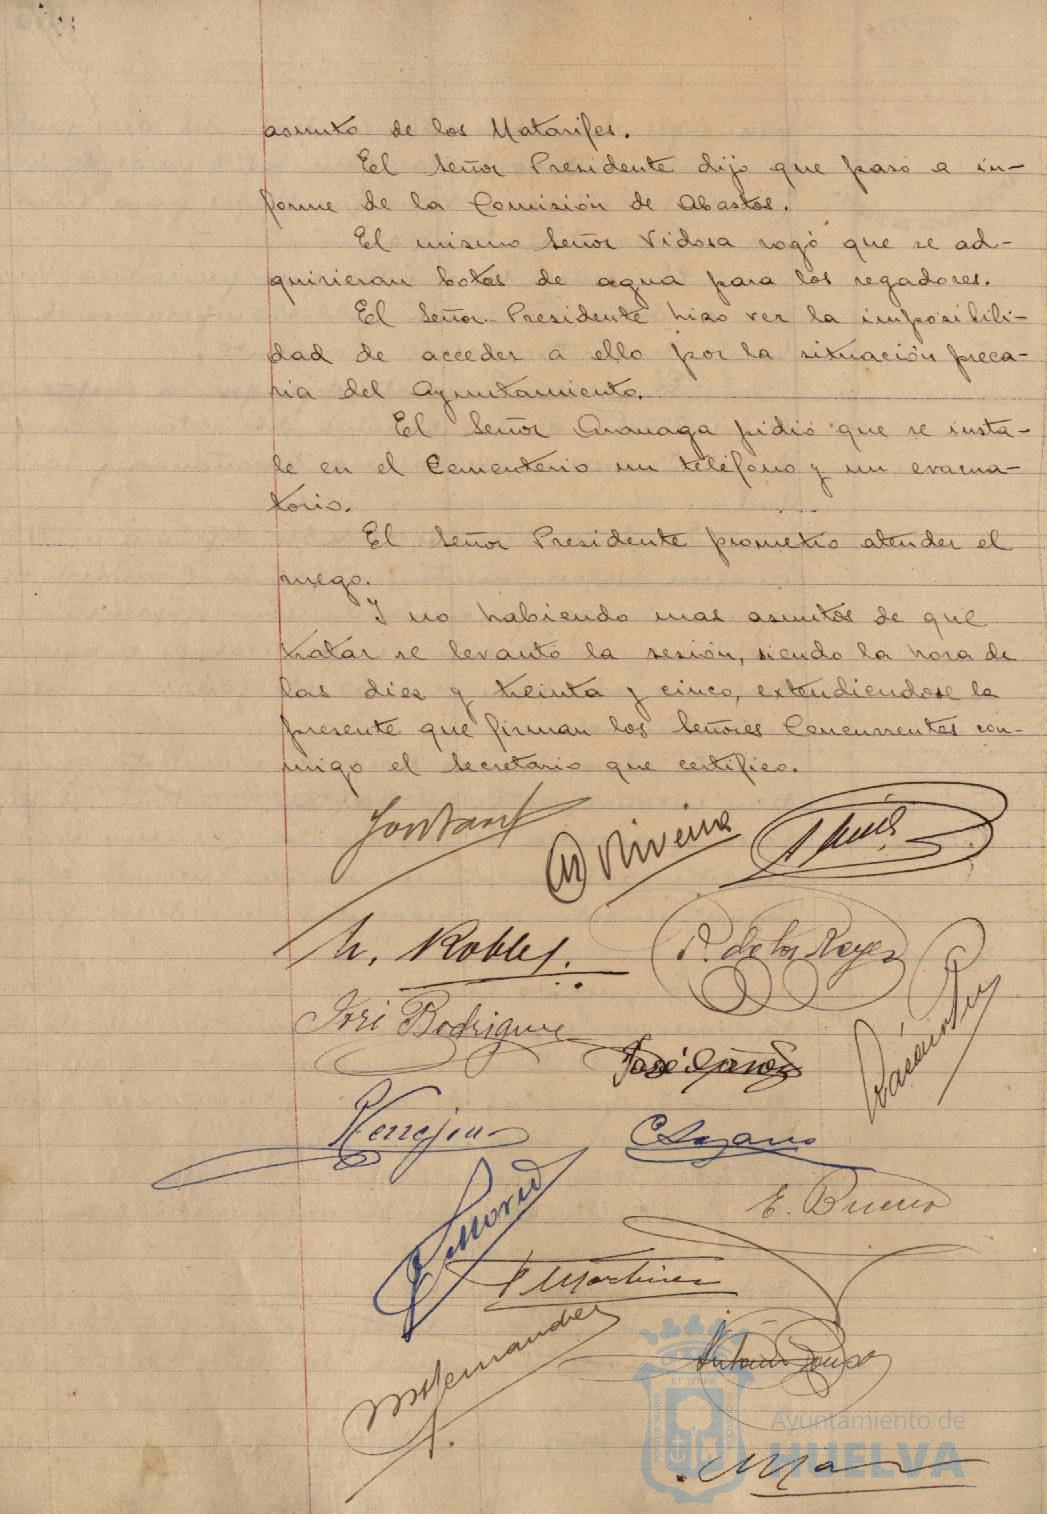 asunto de los Matarifes.
El Señor Presidente dijo que pasó a in-
forme de la Comisión de Abastos.
El mismo Señor Vidosa rogó que se ad-
quirieran botas de agua para los regadores.
El Señor Presidente hizo ver la imposibili-
dad de acceder a ello por la situación preca-
ria del Ayuntamiento.
El Señor pidió que se insta-
le en el Cementerio un teléfono y un evacua-
torio.
El Señor Presidente prometió atender el
ruego.
Y no habiendo mas asuntos de que
tratar se levantó la sesión, siendo la hora de
las diez y treinta y cinco, extendiendose la
presente que firman los Señores Concurrentes con-
migo el Secretario que certifico.
Oliveira
M. Robles.
R. de los Reyes
José Rodriguez
E. Bueno
F Martinez
M Hernandez
Antonio
Ayuntamiento de
HUELVA